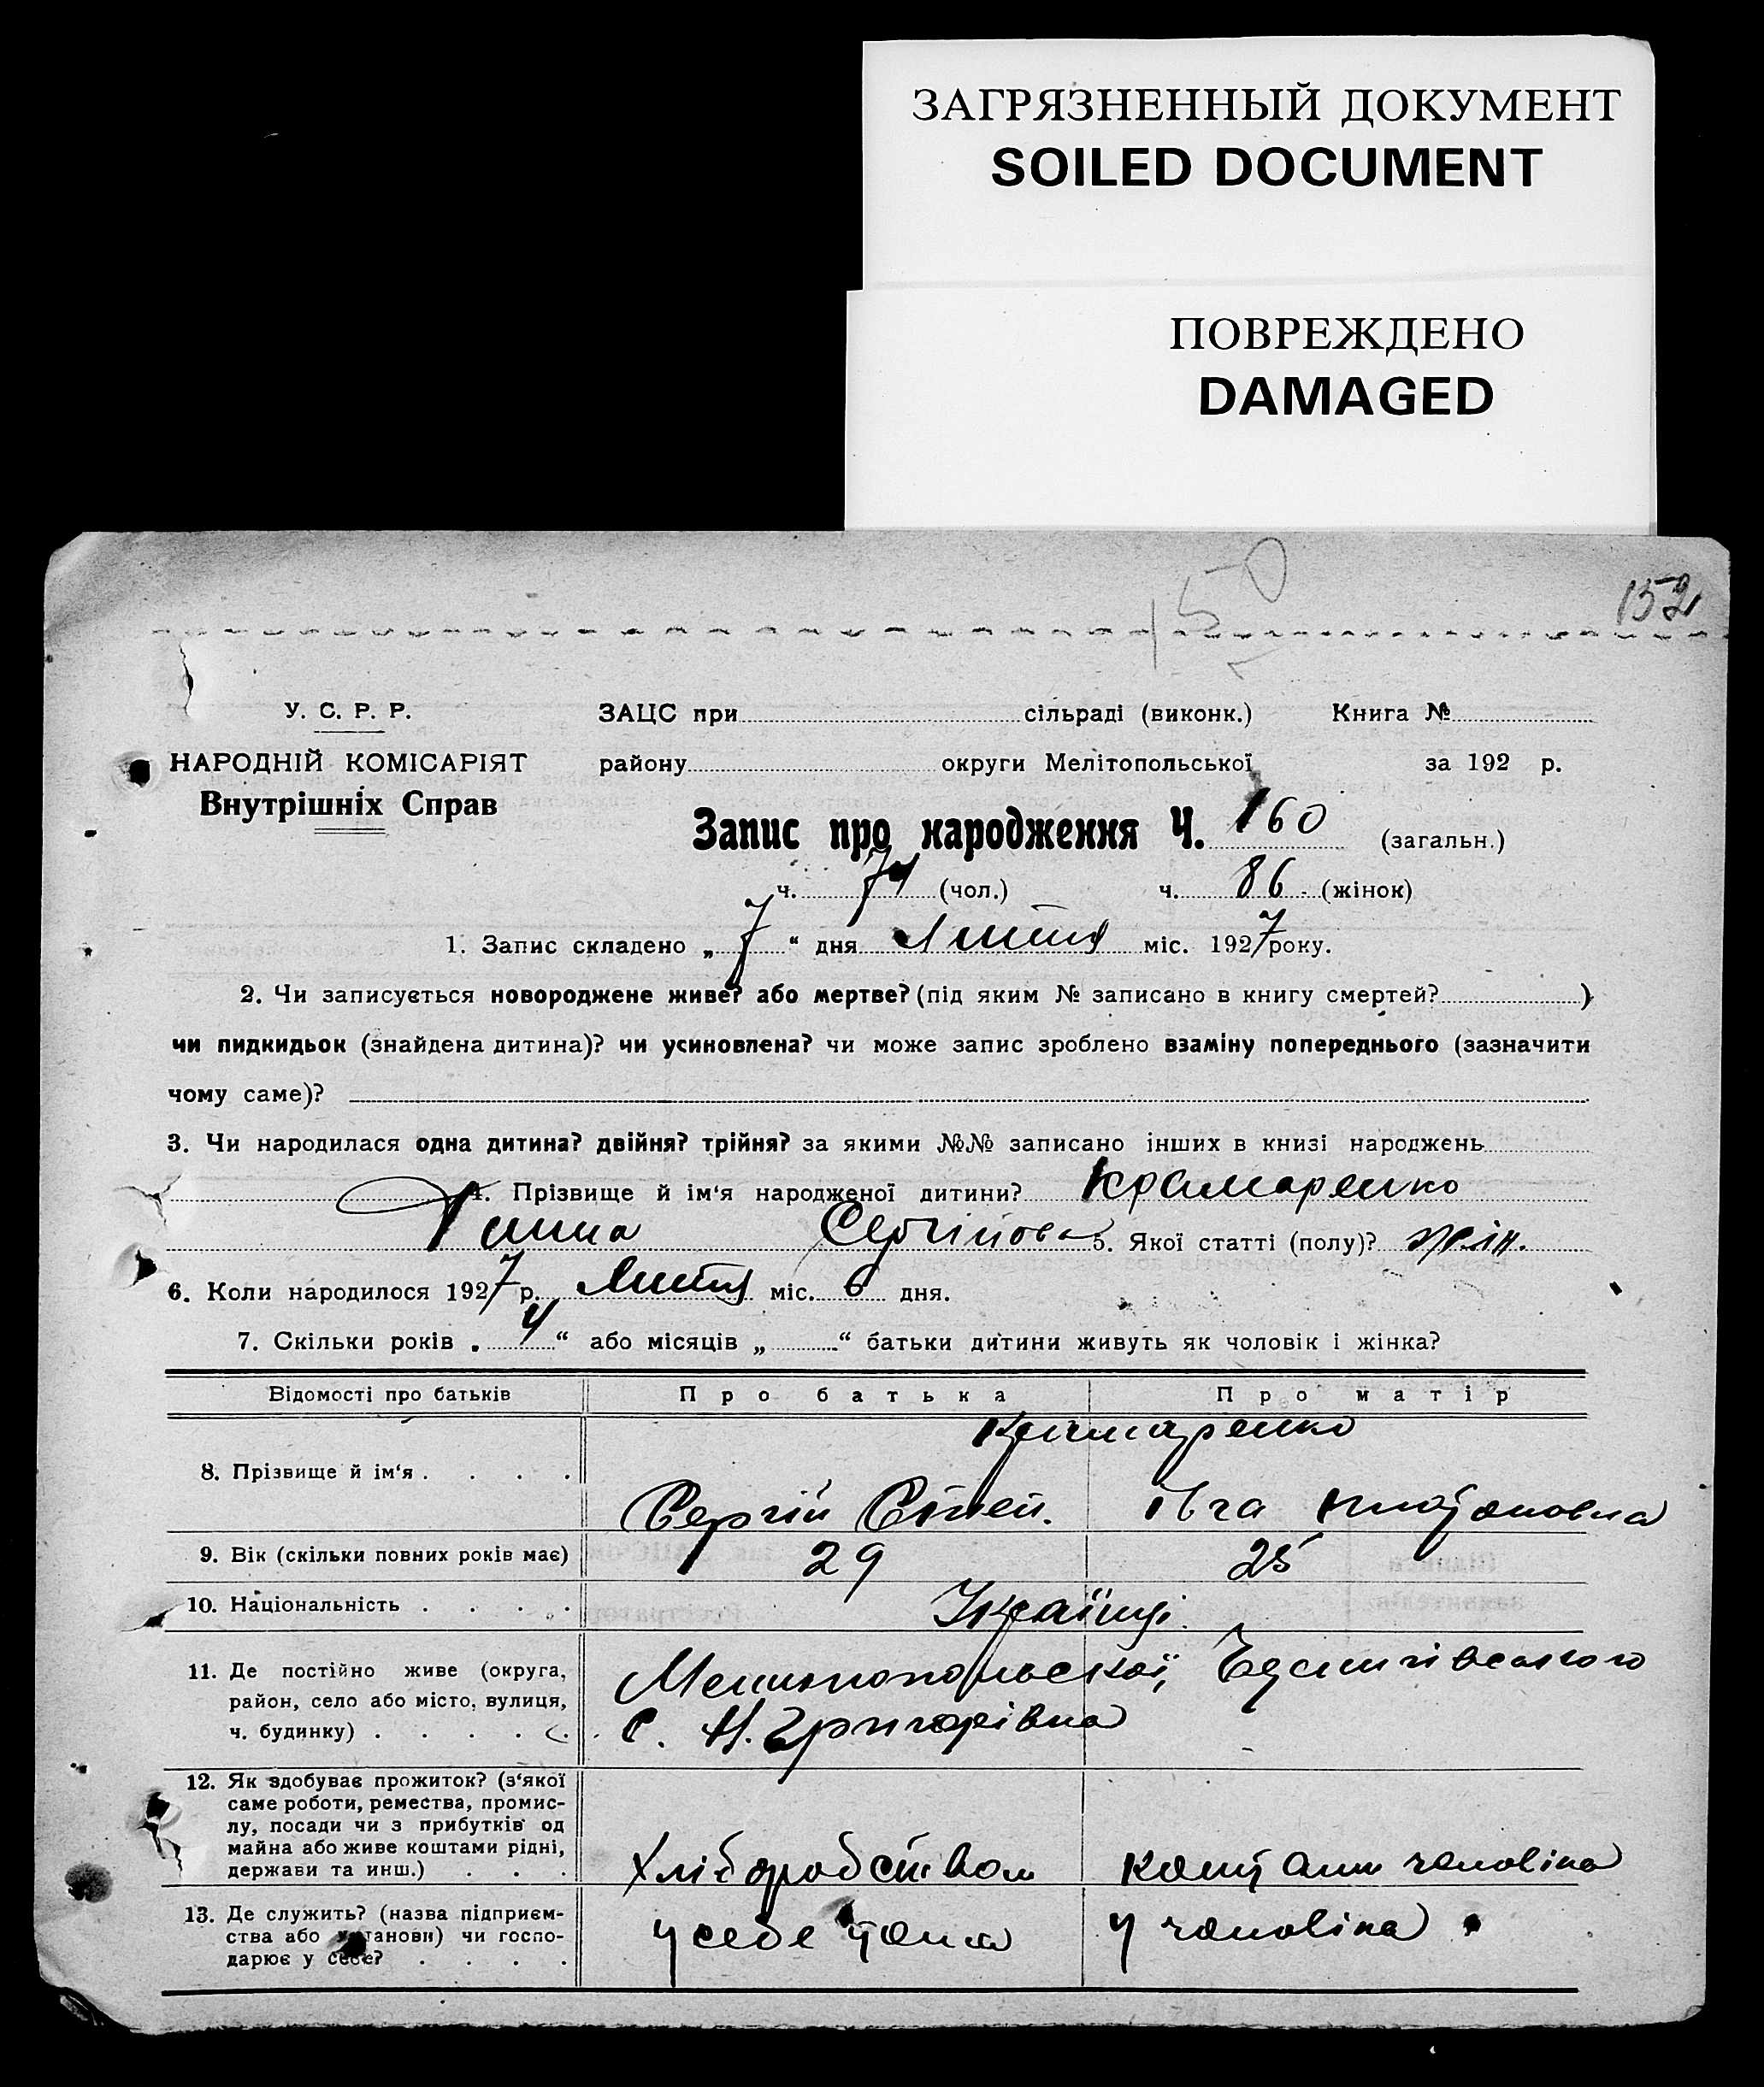 ЗАГРЯЗНЕННЫЙ ДОКУМЕНТ
SOILED DOCUMENT
ПОВРЕЖДЕНО
DAMAGED
150
152
У. С. Р. Р.
ЗАЦС при сільраді (виконк.) Книга №
НАРОДНІЙ КОМІСАРІЯТ
району округи Мелітопольської за 192 р.
Внутрішніх Справ
Запис про народження Ч. 160 (загальн.)
ч. 74 (чол.) ч. 86 (жінок)
1. Запис складено „ 7 “ дня Липня міс. 1927 року.
2. Чи записується новороджене живе? або мертве? (під яким № записано в книгу смертей? )
чи пидкидьок (знайдена дитина)? чи усиновлена? чи може запис зроблено взаміну попереднього (зазначити
чому саме)?
3. Чи народилася одна дитина? двійня? трійня? за якими №№ записано інших в книзі народжень
4. Прізвище й ім‘я народженої дитини? Крамаренко
Ганна Сергійовн 5. Якої статті (полу)? жін.
6. Коли народилося 1927 р. Липня міс. 6 дня.
7. Скільки років „ 4 “ або місяців „ “ батьки дитини живуть як чоловік і жінка?
Відомості про батьків Про батька Про матір
Крамаренко
8. Прізвище й ім‘я
Сергій Степ. Івга
9. Вік (скільки повних років має) 29 25
10. Національність Українці
11. Де постійно живе (округа,
район, село або місто, вулиця,
ч. будинку)
Мелитопольської,
с. Н. Григорівна
12. Як здобуває прожиток? (з‘якої
саме роботи, ремества, промис-
лу, посади чи з прибутків од
майна або живе коштами рідні,
держави та инш.)
Хліборобством Кошт. чоловіка
13. Де служить? (назва підприєм-
ства або установи) чи госпо-
дарює у себе?
у себе дома у чоловіка